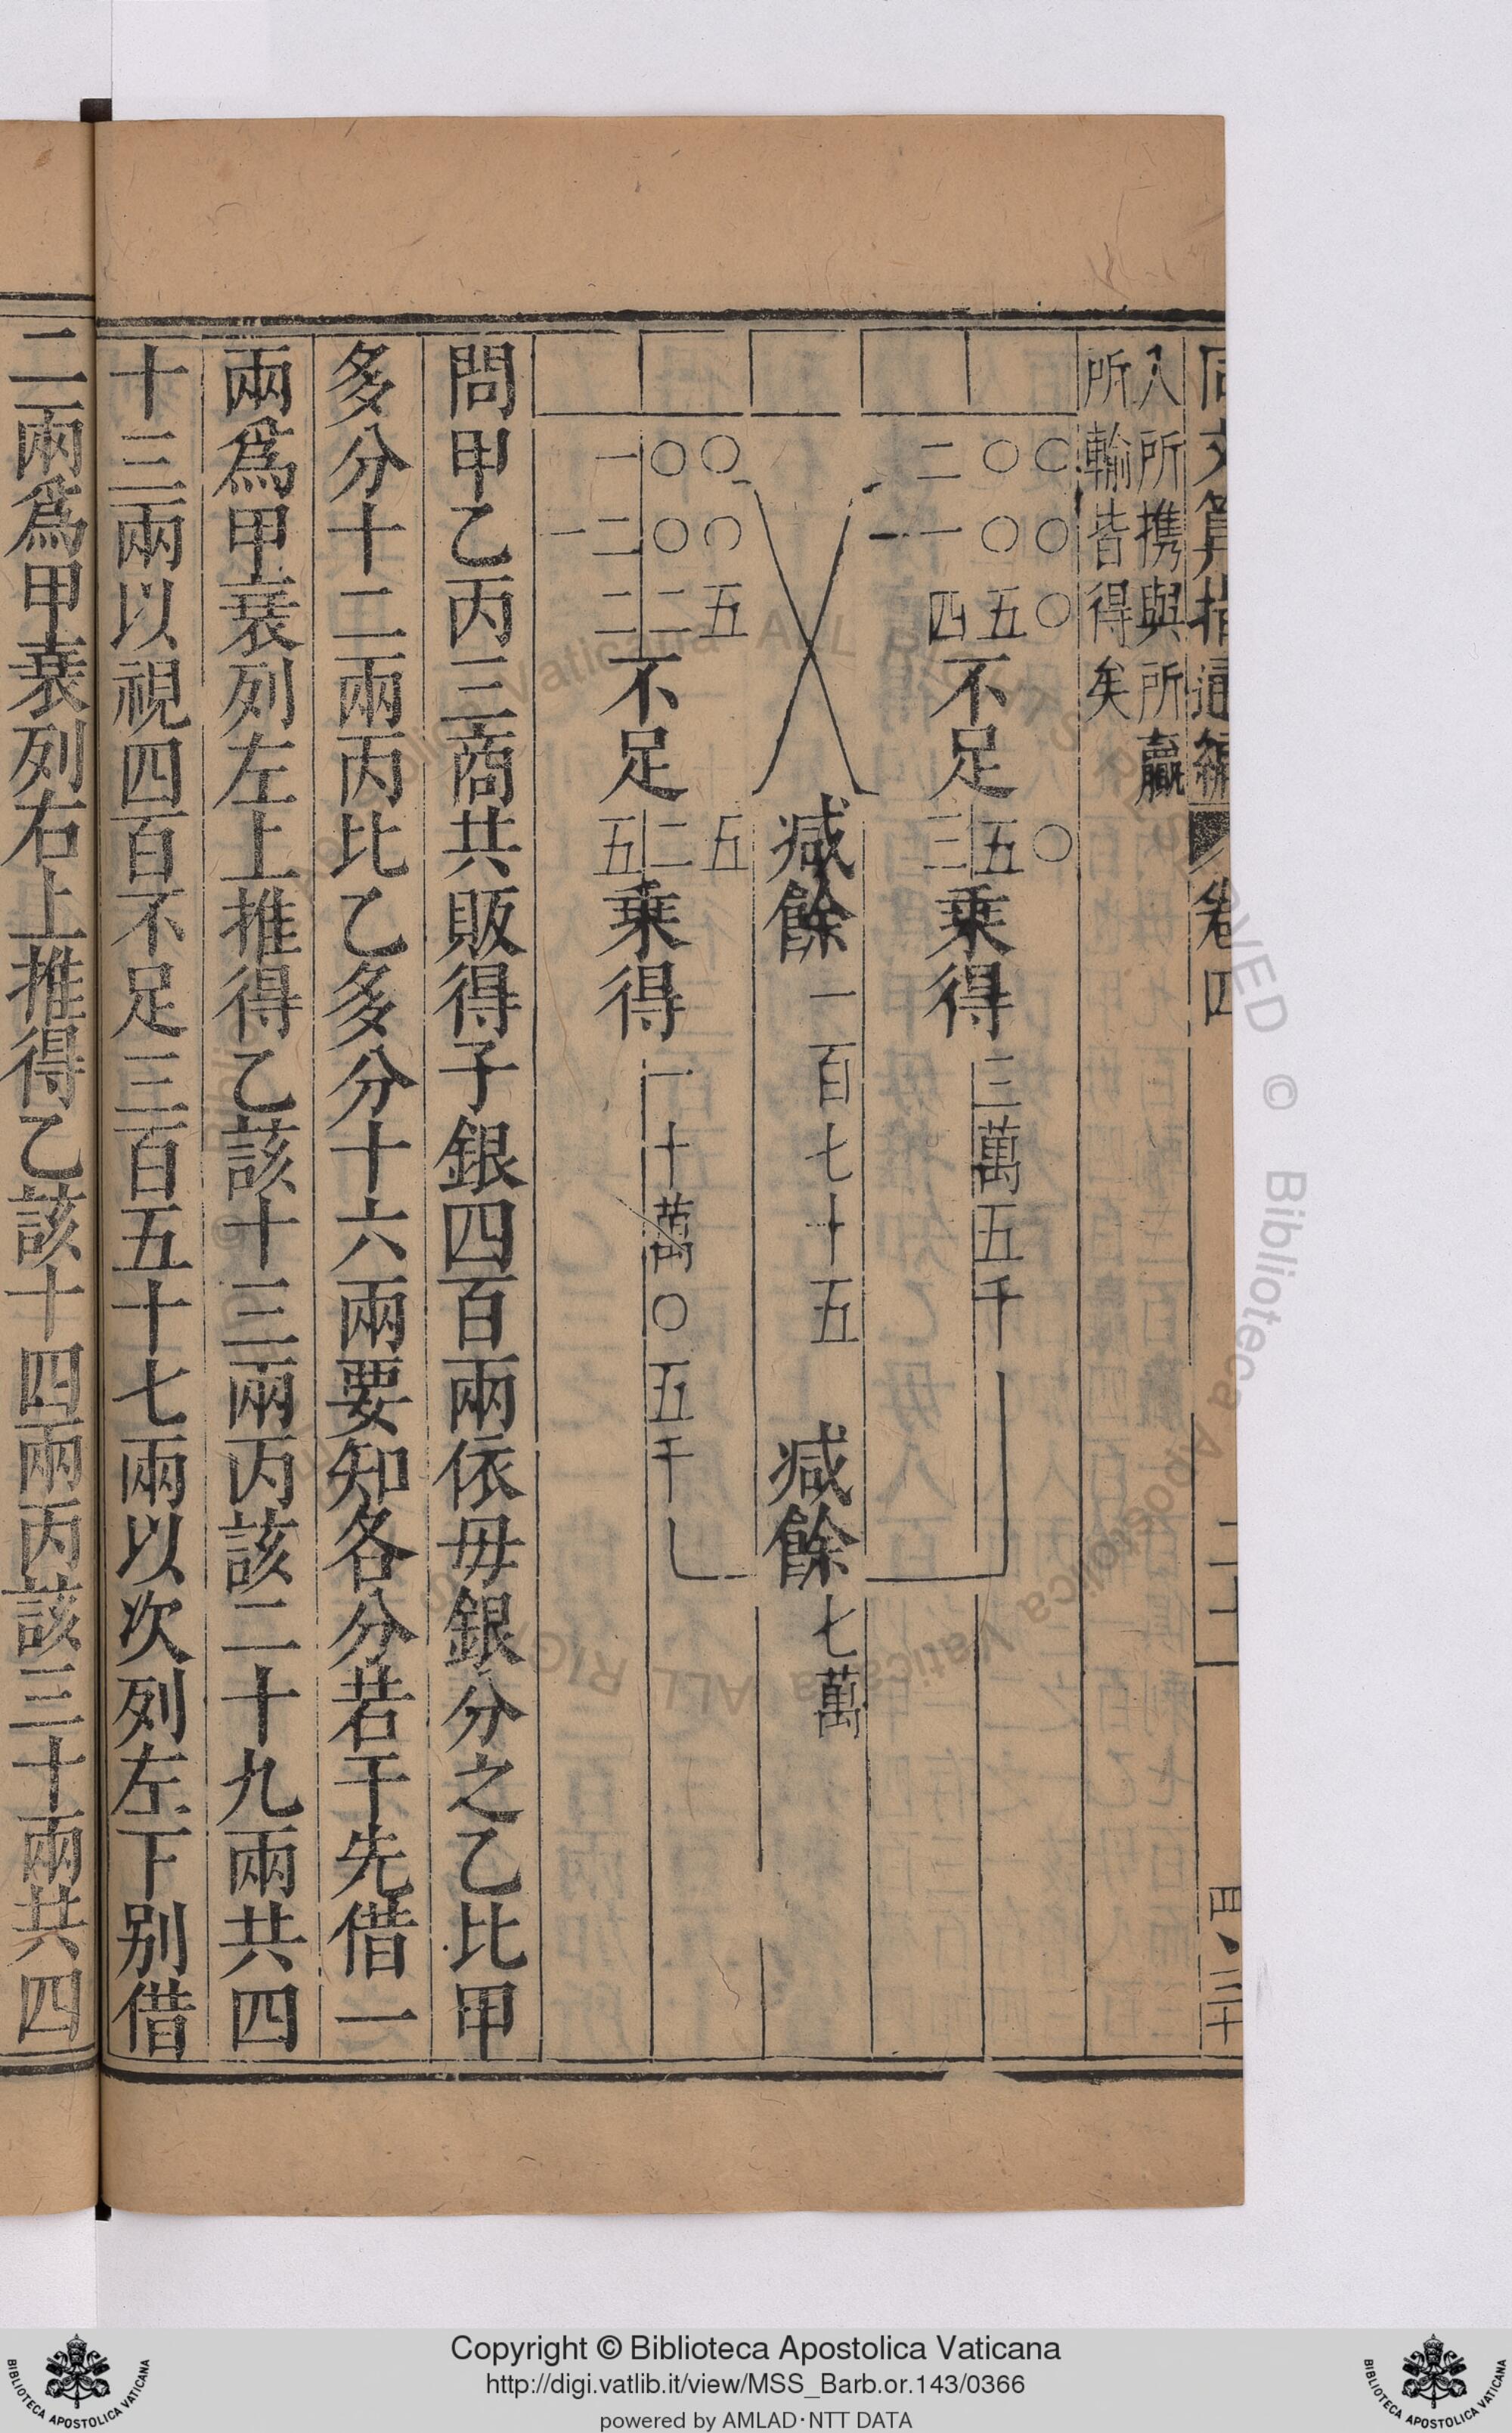 同文算指通編 卷四
人所携與所贏
所輸皆得矣
○○○ ○
○○五 五
二一四 三
一
不足 乘得 三萬五千
減餘 一百七十五 減餘 七萬
○○五 五
○○二 二
一二二 五
一
不足 乘得 一十萬○五千
問甲乙丙三商共販得子銀四百兩依毋銀分之乙比甲
多分十二兩丙比乙多分十六兩要知各分若干先借一
兩爲甲衰列左上推得乙該十三兩丙該二十九兩共四
十三兩以視四百不足三百五十七兩以次列左下别借
二兩爲甲衰列右上推得乙該十四兩丙該三十兩共四
Copyright © Biblioteca Apostolica Vaticana
http://digi.vatlib.it/view/MSS_Barb.or.143/0366
powered by AMLAD·NTT DATA